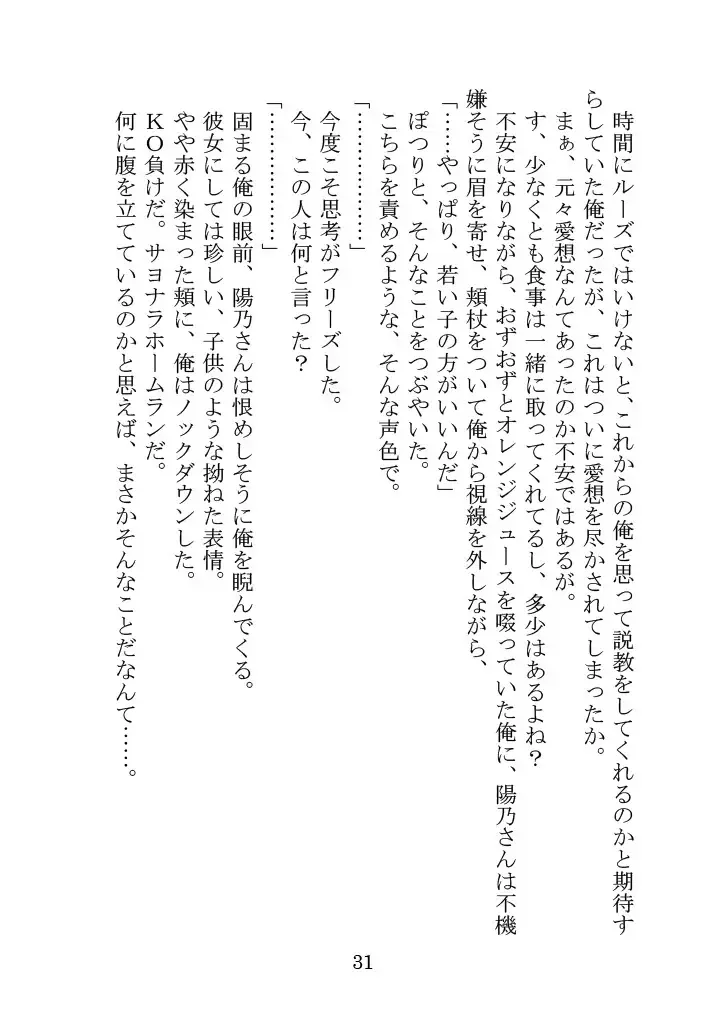 時間にルーズではいけないと、これからの俺を思って説教をしてくれるのかと期待す
らしていた俺だったが、これはついに愛想を尽かされてしまったか。
まぁ、元々愛想なんてあったのか不安ではあるが。
す、少なくとも食事は一緒に取ってくれてるし、多少はあるよね？
不安になりながら、おずおずとオレンジジュースを啜っていた俺に、陽乃さんは不機
嫌そうに眉を寄せ、頬杖をついて俺から視線を外しながら、
「……やっぱり、若い子の方がいいんだ」
ぽつりと、そんなことをつぶやいた。
こちらを責めるような、そんな声色で。
「………………」
今度こそ思考がフリーズした。
今、この人は何と言った？
「………………」
固まる俺の眼前、陽乃さんは恨めしそうに俺を睨んでくる。
彼女にしては珍しい、子供のような拗ねた表情。
やや赤く染まった頬に、俺はノックダウンした。
ＫＯ負けだ。サヨナラホームランだ。
何に腹を立てているのかと思えば、まさかそんなことだなんて……。
31